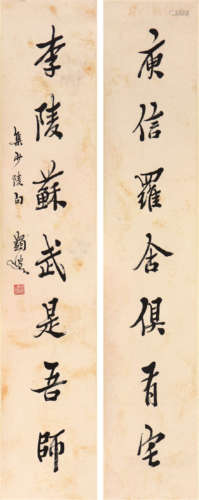 庾信羅含俱有宅
李陵蘇武是吾師
集少陵句